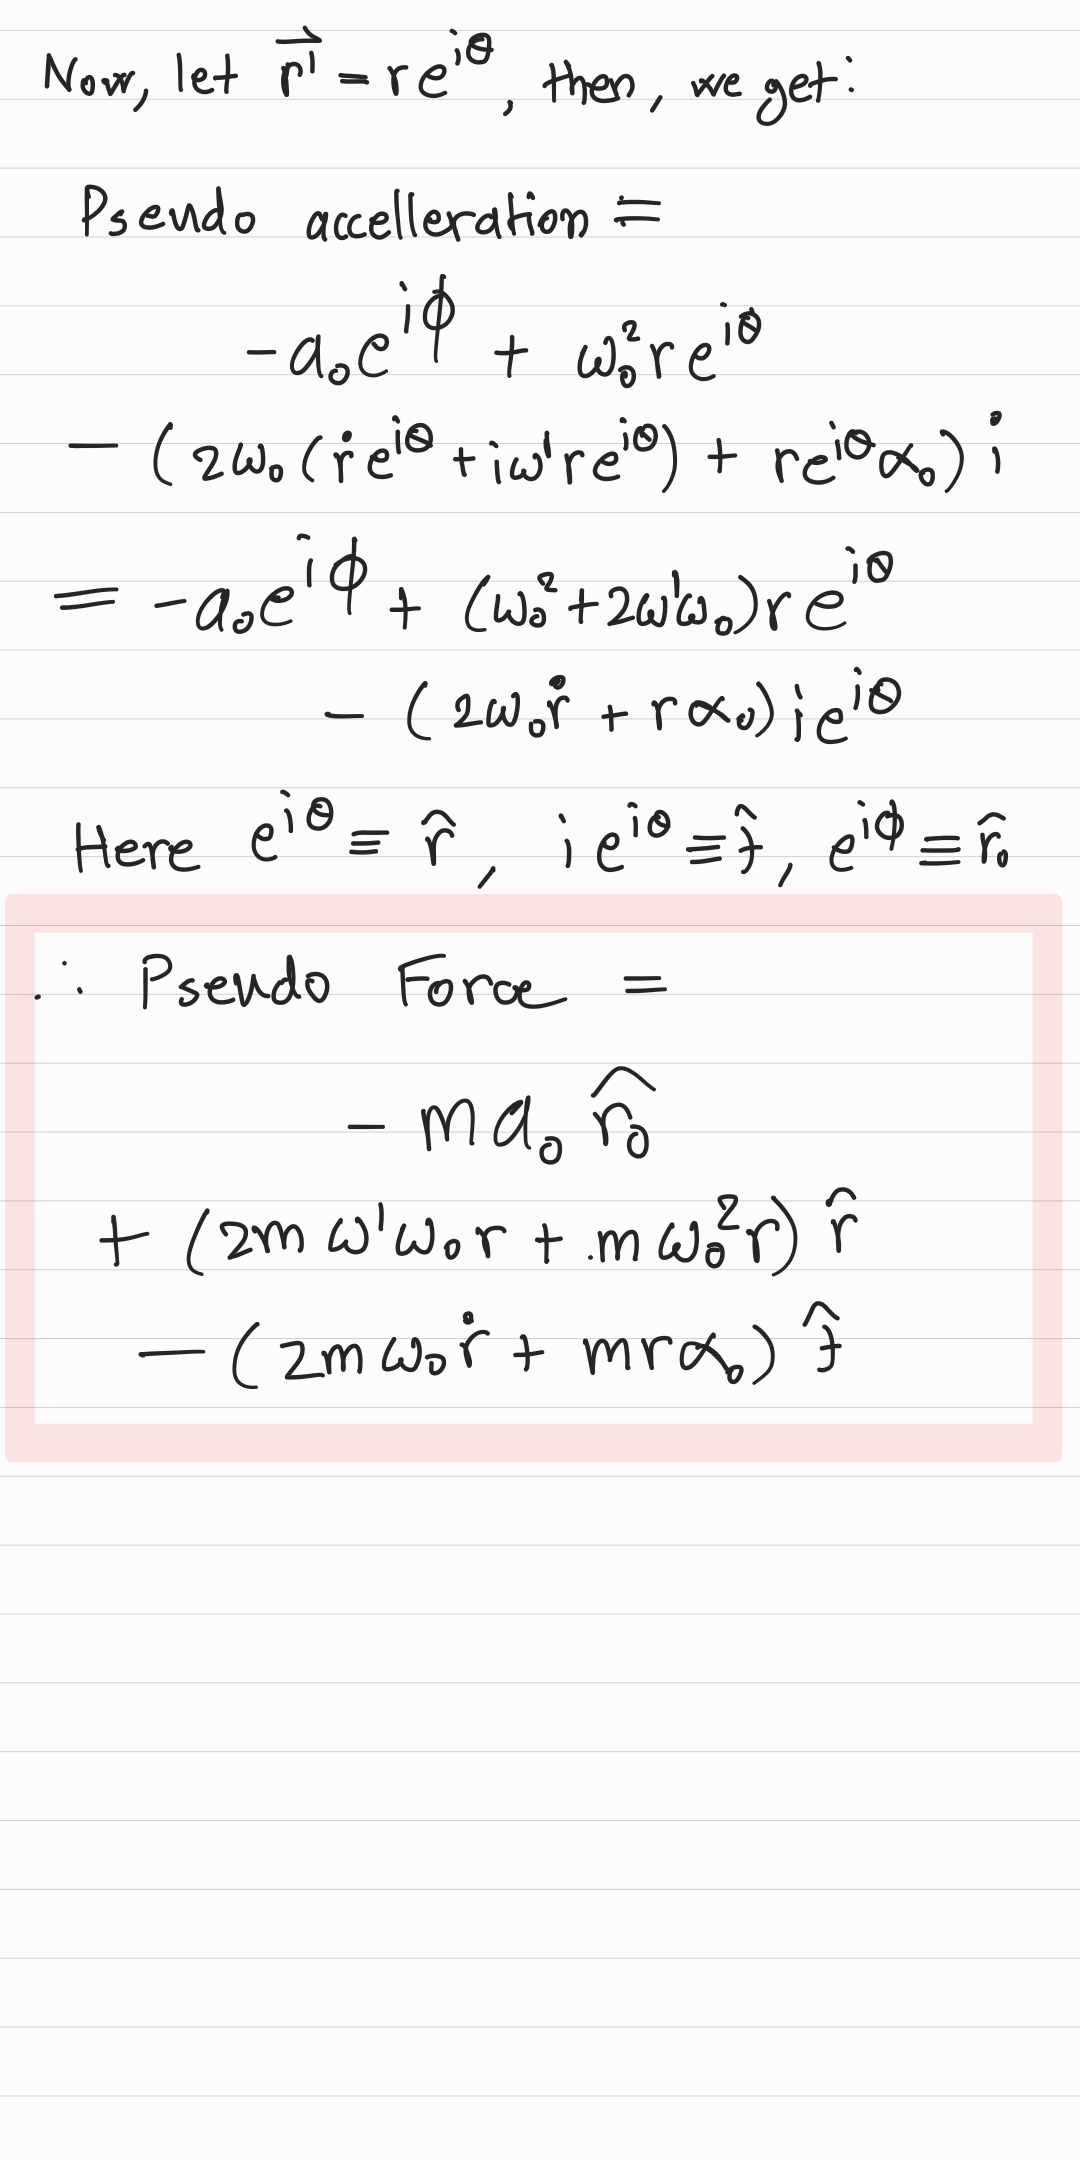 Now, let $\vec{r'} = re^{i\theta}$, then, we get:
Pseudo accelleration =
$-a_0e^{i\phi} + \omega_0^2re^{i\theta}$
$-(2\omega_0(\dot{r}e^{i\theta} + i\omega're^{i\theta}) + re^{i\theta}\alpha_0)i$
$= -a_0e^{i\phi} + (\omega_0^2 + 2\omega'\omega_0)re^{i\theta}$
$-(2\omega_0\dot{r} + r\alpha_0)ie^{i\theta}$
Here $e^{i\theta} \equiv \hat{r}$, $ie^{i\theta} \equiv \hat{t}$, $e^{i\phi} \equiv \hat{r_0}$
∴ Pseudo Force =
$-ma_0\hat{r_0}$
$+(2m\omega'\omega_0r + m\omega_0^2r)\hat{r}$
$-(2m\omega_0\dot{r} + mr\alpha_0)\hat{t}$